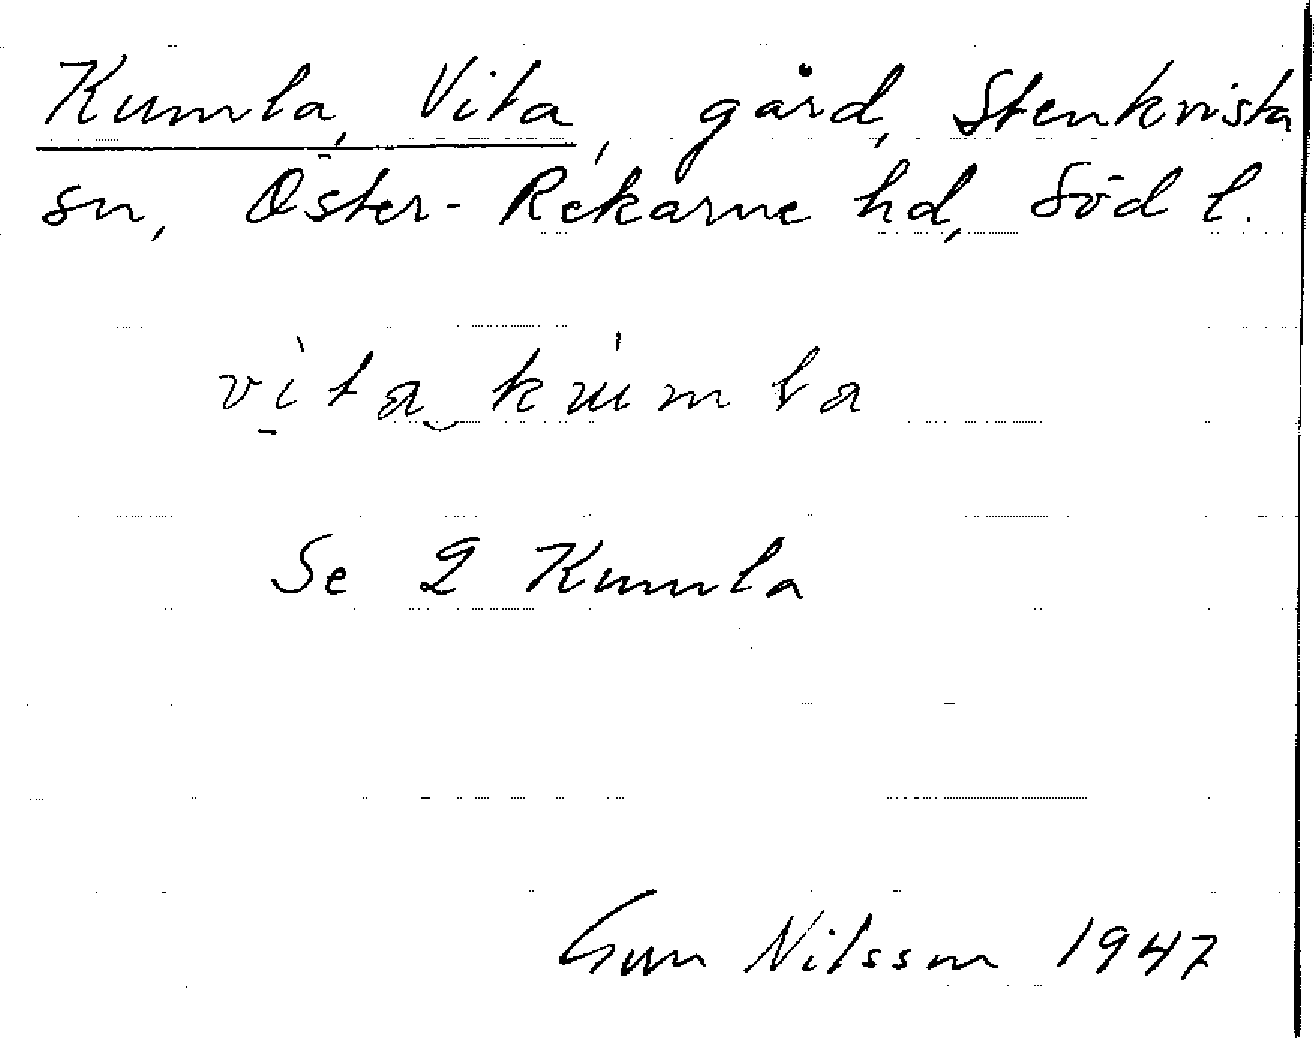 Kumla, Vita, gård, Stenkvista
sn, Öster-Rekarne hd, Söd l.
vita kumla
Se 2 Kumla
Gun Nilsson 1947